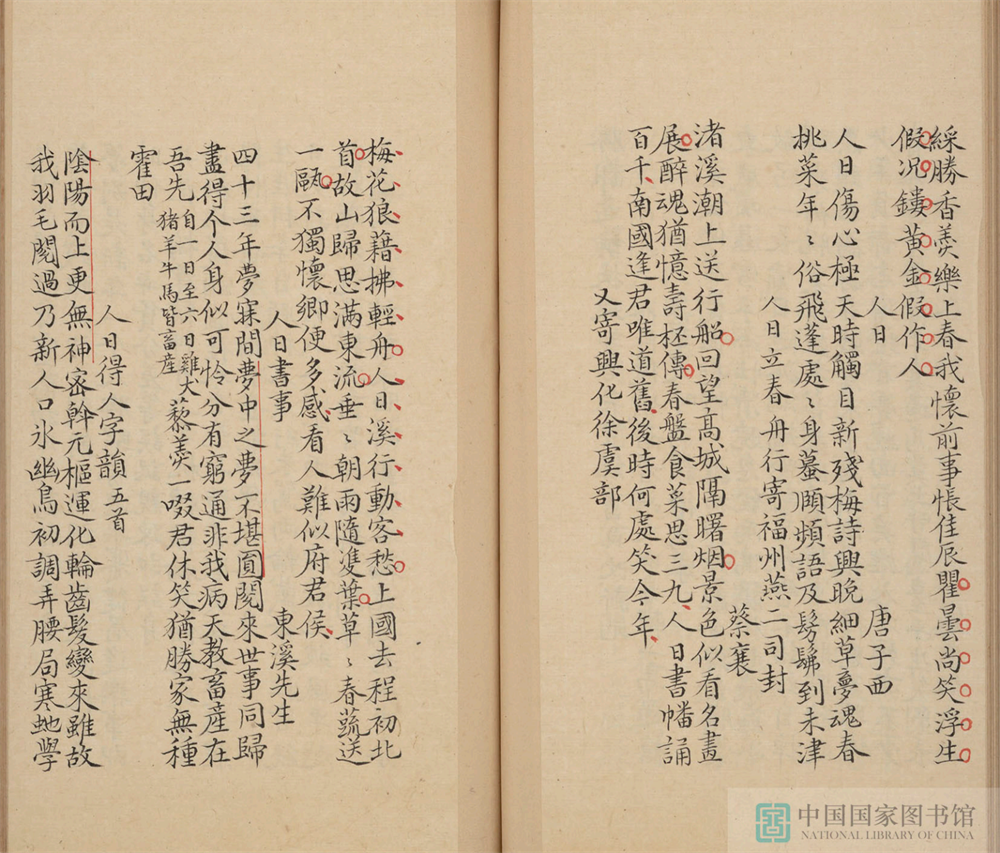 綵勝香羮樂上春我懷前事悵佳辰瞿曇尚笑浮生
假况鏤黄金假作人
人日
唐子西
人日傷心極天時觸目新殘梅詩興晚細草夢魂春
挑菜年〻俗飛蓬處〻身蟇頤頻語及髣髴到未津
人日立春舟行寄福州燕二司封
蔡襄
渚溪潮上送行船回望高城隔曙烟景色似看名畫
展醉魂猶憶壽柸傳春盤食菜思三九人日書幡誦
百千南國逢君唯道舊後時何處笑今年
又寄興化徐虞部
梅花狼藉拂輕舟人日溪行動客愁上國去程初北
首故山歸思满東流垂〻朝雨隨雙葉草〻春蔬送
一甌不獨懷卿便多感看人難似府君侯
人日書事
東溪先生
四十三年夢寐間夢中之夢不堪圎閱來世事同歸
盡得个人身似可怜分有窮通非我病天教畜産在
吾先自一日至六日雞犬猪羊牛馬皆畜産藜羮一啜君休笑猶勝家無種
霍田
人日得人字韻五首
隂陽而上更無神宻幹元樞運化輪齒髮變來雖故
我羽毛閱過乃新人口氷幽鳥初調弄腰局寒虵學
中国国家图书馆
NATIONAL LIBRARY OF CHINA